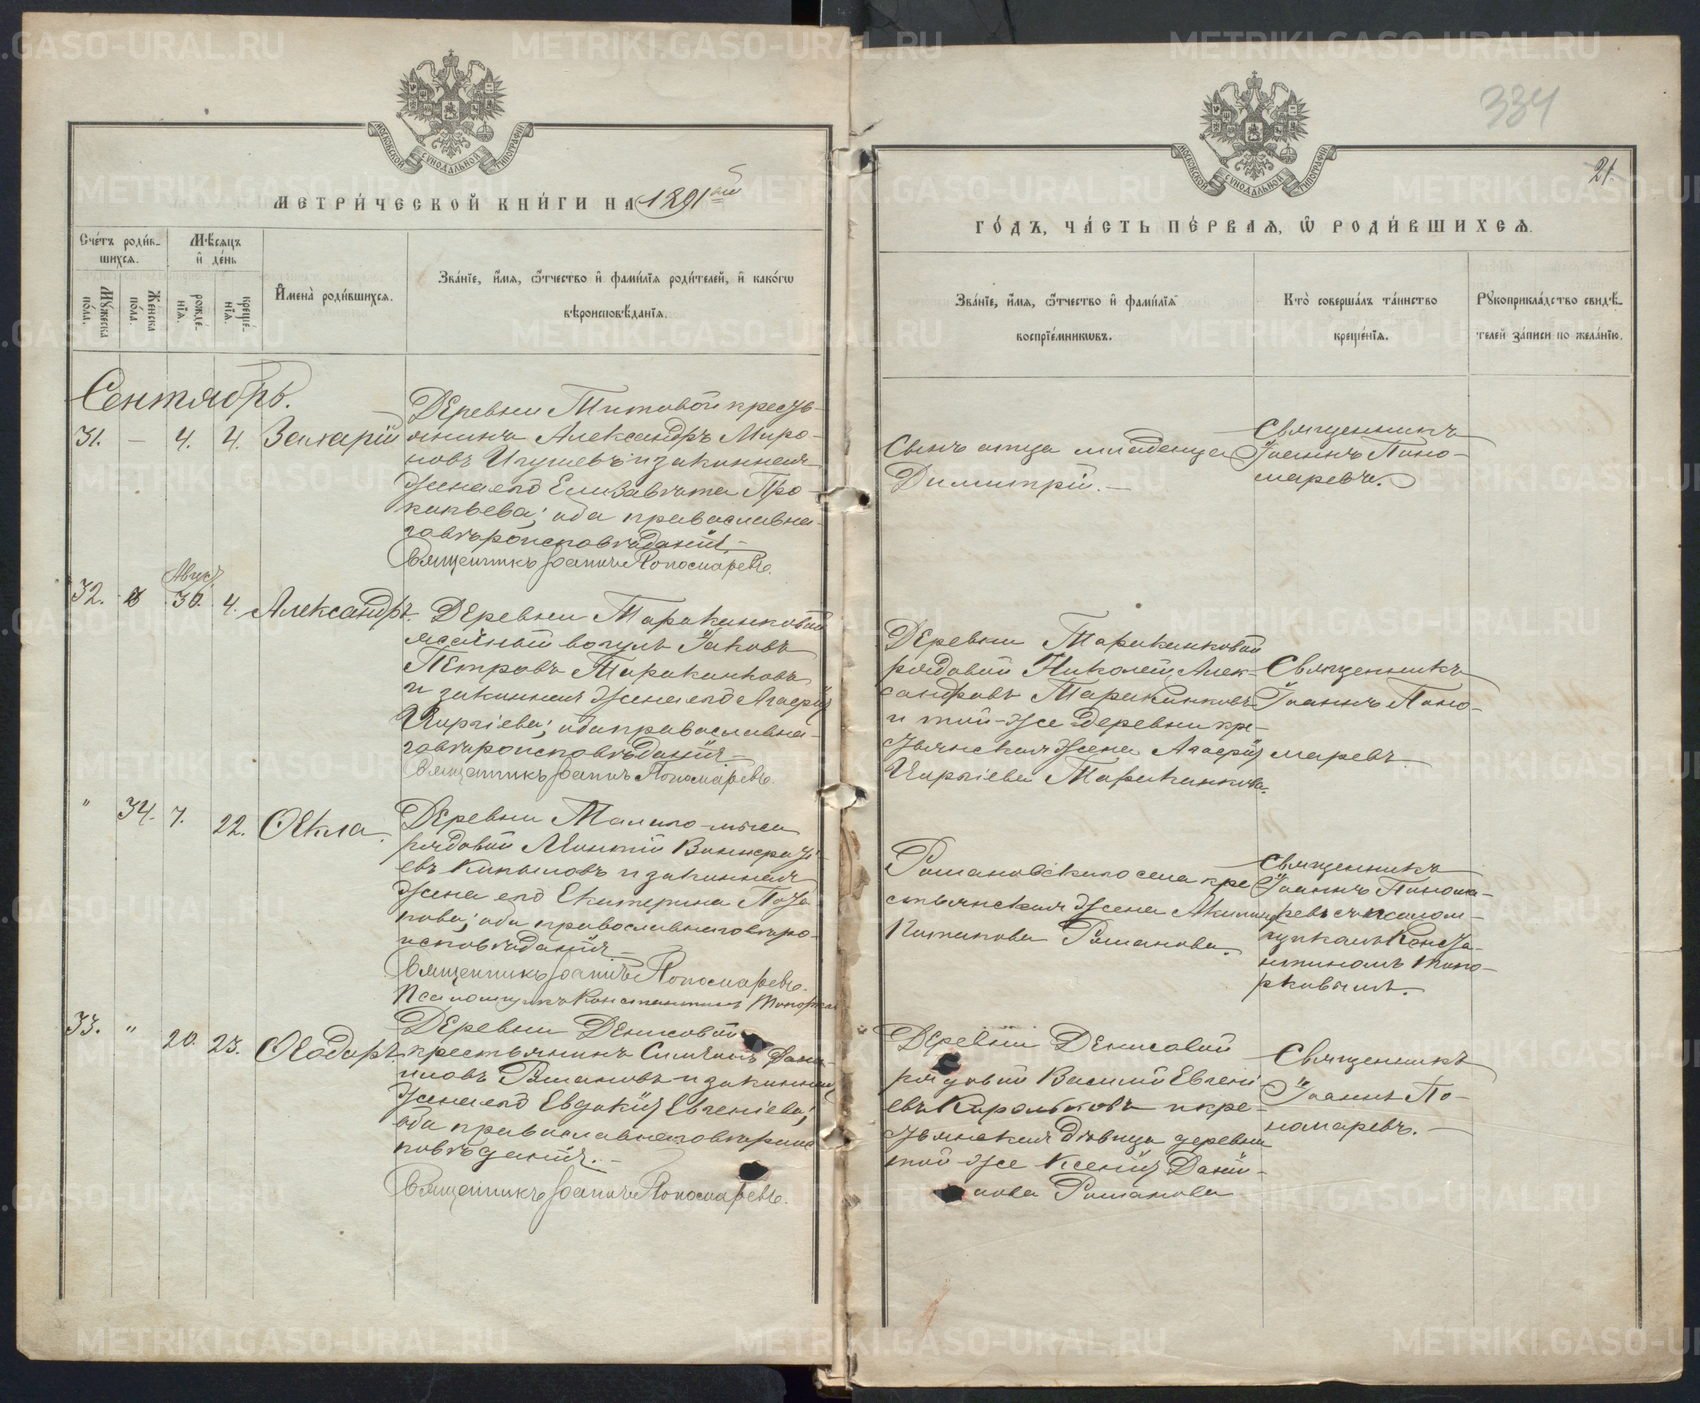 МОСКОВСКОЙ СУНОДАЛЬНОЙ ТИПОГРАФІИ
МЕТРИ́ЧЕСКОЙ КНИ́ГИ НА 1891ый
Сче́тъ роди́в-
шихсѧ.
Мѣ́сѧцъ
и҆ де́нь
Мꙋ́жеска
по́ла.
Же́нска
по́ла.
рожде-
нїѧ.
креще́-
нїѧ.
И҆мена̀ роди́вшихсѧ.
Зва́нїе, и҆́мѧ, ѻ҆́тчество и҆ фами́лїѧ роди́телей, и҆ како́гѡ
вѣроисповѣ́данїѧ.
Сентябрь.
31. — 4. 4. Захарій
Деревни Титовой кресть-
янинъ Александръ Миро-
новъ Игушевъ и законная
жена его Елизавета Про-
копьева; оба православна-
го вѣроисповѣданія.—
Священникъ Іоаннъ Пономаревъ.
32. Авгус. 30. 4. Александръ.
Деревни Тараканковой
ясачный вогулъ Іаковъ
Петровъ Тараканковъ
и законная жена его Агаѳія
Киріева; оба православна-
го вѣроисповѣданія.—
Священникъ Іоаннъ Пономаревъ.
" 34. 7. 22. Ѳекла.
Деревни
рядовой Викнера
евъ Копыловъ и законная
жена его Екатерина Пота-
пова; оба православнаго вѣро-
исповѣданія.—
Священникъ Іоаннъ Пономаревъ.
Псаломщикъ Константинъ Топорков
33. " 20. 23. Ѳеодоръ.
Деревни Денисовой
крестьянинъ Симеонъ Дани-
иловъ Романовъ и законная
жена его Евдокія Евгеніева;
оба православнаго вѣроис-
повѣданія.—
Священникъ Іоаннъ Пономаревъ.
334
МОСКОВСКОЙ СУНОДАЛЬНОЙ ТИПОГРАФІИ
21.
ГО́ДЪ, ЧА́СТЬ ПЕ́РВАѦ, Ѡ҆ РОДИ́ВШИХСѦ.
Зва́нїе, и҆́мѧ, ѻ҆́тчество и҆ фами́лїѧ
воспрїе́мникѡвъ.
Кто̀ соверша́лъ та́инство
креще́нїѧ.
Рꙋкоприкла́дство свидѣ́-
телей за́писи по жела́нїю.
Сынъ отца младенца
Димитрій.—
Священникъ
Іоаннъ Поно-
маревъ.
Деревни Тараканковой
рядовой Николай Алек-
сандровъ Тараканковъ
и той-же деревни кре-
стьянская жена Агаѳія
Киріева Тараканкова.
Священникъ
Іоаннъ Поно-
маревъ.
Романовскаго села кре-
стьянская жена
Потапова Романова.
Священникъ
Іоаннъ Понома-
ревъ съ псалом-
щикомъ Конста-
нтиномъ Топо-
рковымъ.
Деревни Денисовой
рядовой Василій Евгені-
евъ Корольковъ и кре-
стьянская дѣвица деревни
той-же Ксенія Даніи-
лова Романова
Священникъ
Іоаннъ По-
номаревъ.—
METRIKI.GASO-URAL.RU